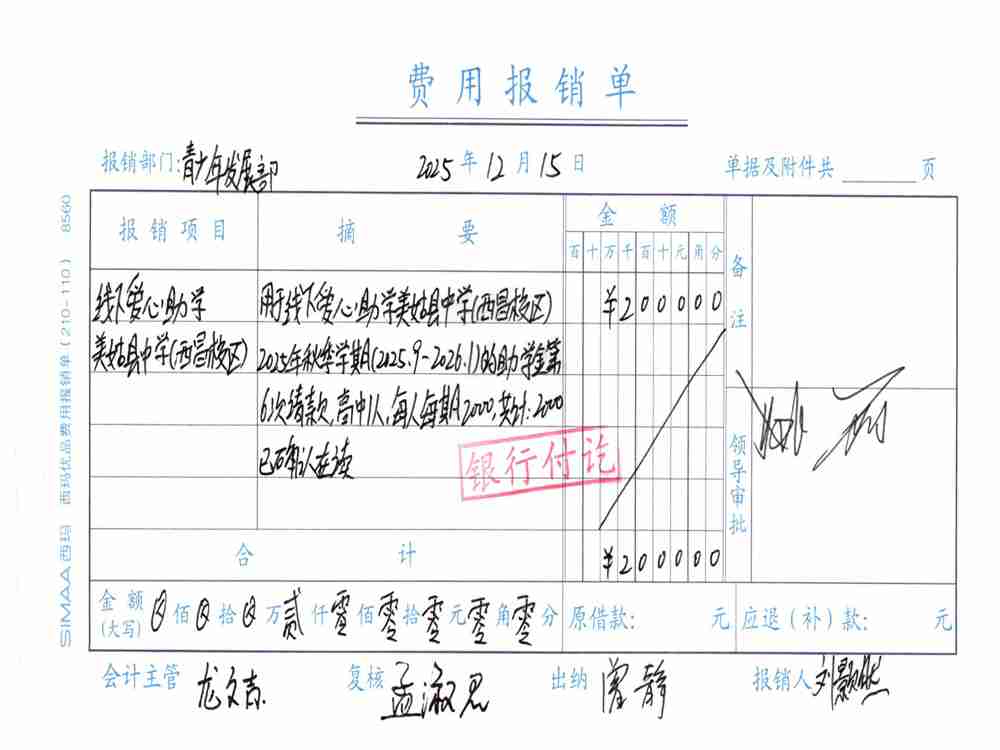 费用报销单
报销部门:青少年发展部 2025年12月15日 单据及附件共 页
报销项目 摘要 金额 备注
百十万千百十元角分
线下爱心助学 用于线下爱心助学美姑县中学(西昌校区) ¥200000
美姑县中学(西昌校区) 2025年秋季学期(2025.9-2026.1)的助学金第
6次请款,高中1人,每人每期2000,共计:2000
已确认在读
银行付讫
领导审批
合计 ¥200000
金额(大写) 佰 拾 万贰仟零佰零拾零元零角零分 原借款: 元 应退(补)款: 元
会计主管 龙文吉 复核 孟淑思 出纳 静 报销人 刘颢然
SIMAA西玛 西玛优品费用报销单(210-110) 8560